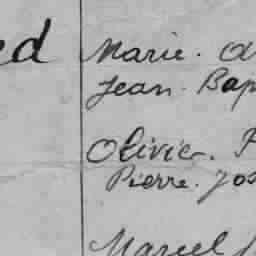 ed Marie. a
Jean. Bap
Olivier. F
Pierre. Jos
Marcel